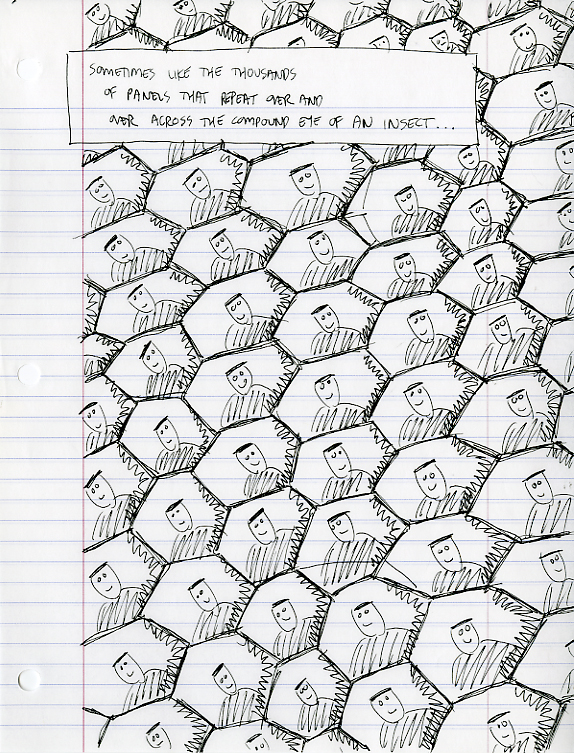 SOMETIMES LIKE THE THOUSANDS
OF PANELS THAT REPEAT OVER AND
OVER ACROSS THE COMPOUND EYE OF AN INSECT...